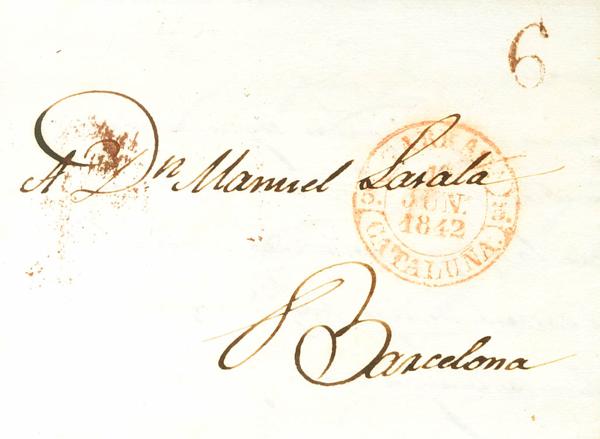 6
A Dn Manuel Lasala
JUN.
1842
CATALUÑA.
Barcelona